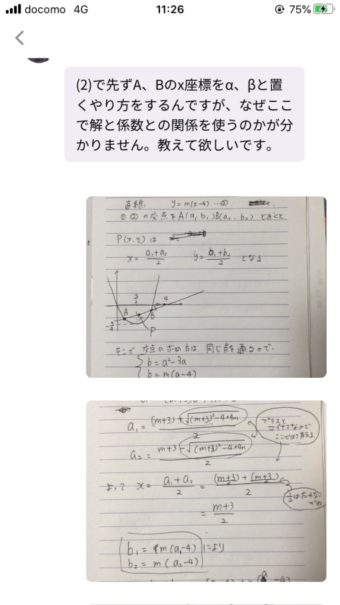 docomo 4G
11:26
75%
(2)で先ずA、Bのx座標をα、βと置
くやり方をするんですが、なぜここ
で解と係数との関係を使うのかが分
かりません。教えて欲しいです。
直線 y=m(x-4) …②
①②の交点をA(a₁ b₁) (a₂, b₂) とおくと
P(x,y)は
x = a₁+a₂/2 y = b₁+b₂/2 となる
A
B
4
P
同じ点を通るので
b=a²-3a
b=m(a-4)
a₁ = (m+3)+√(m+3)²-4×4m/2
a₂ = (m+3)-√(m+3)²-4×4m/2
よって x = a₁+a₂/2 = (m+3)+(m+3)/2
= m+3/2
b₁ = m(a₁-4)
b₂ = m(a₂-4)
により